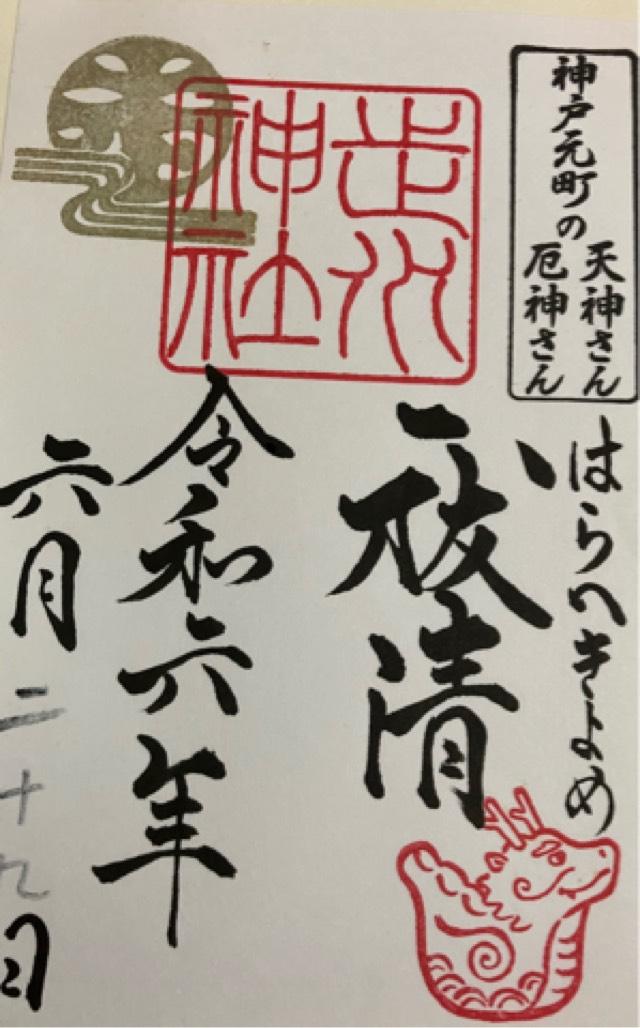 神戸元町の
天神さん
厄神さん
はらへきよめ
祓清
走水
神社
令和六年
六月二十九日